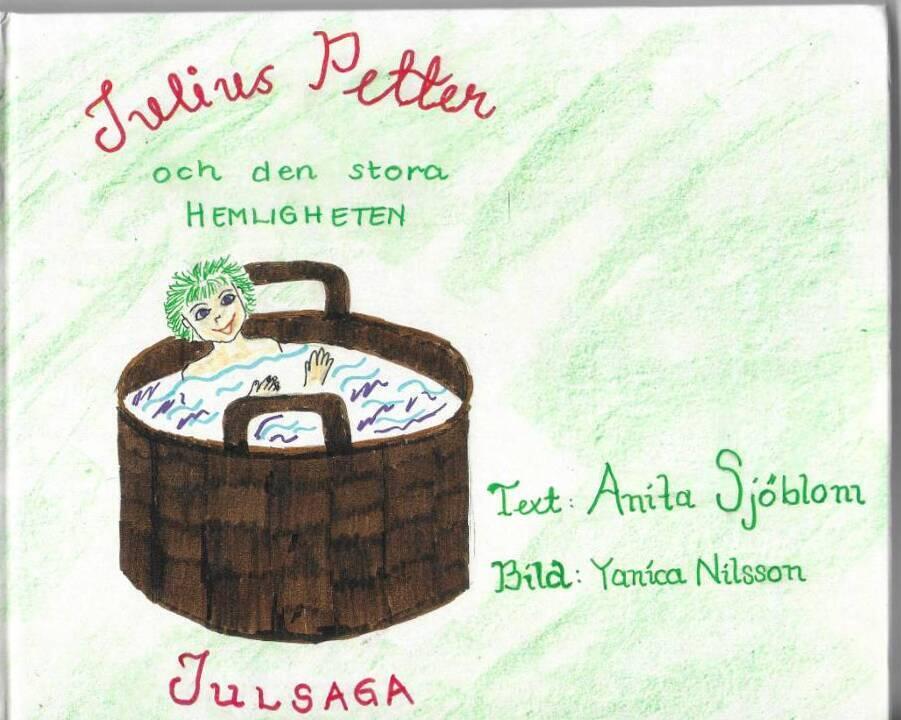 Julius Petter
och den stora
HEMLIGHETEN
Text: Anita Sjöblom
Bild: Yanica Nilsson
JULSAGA